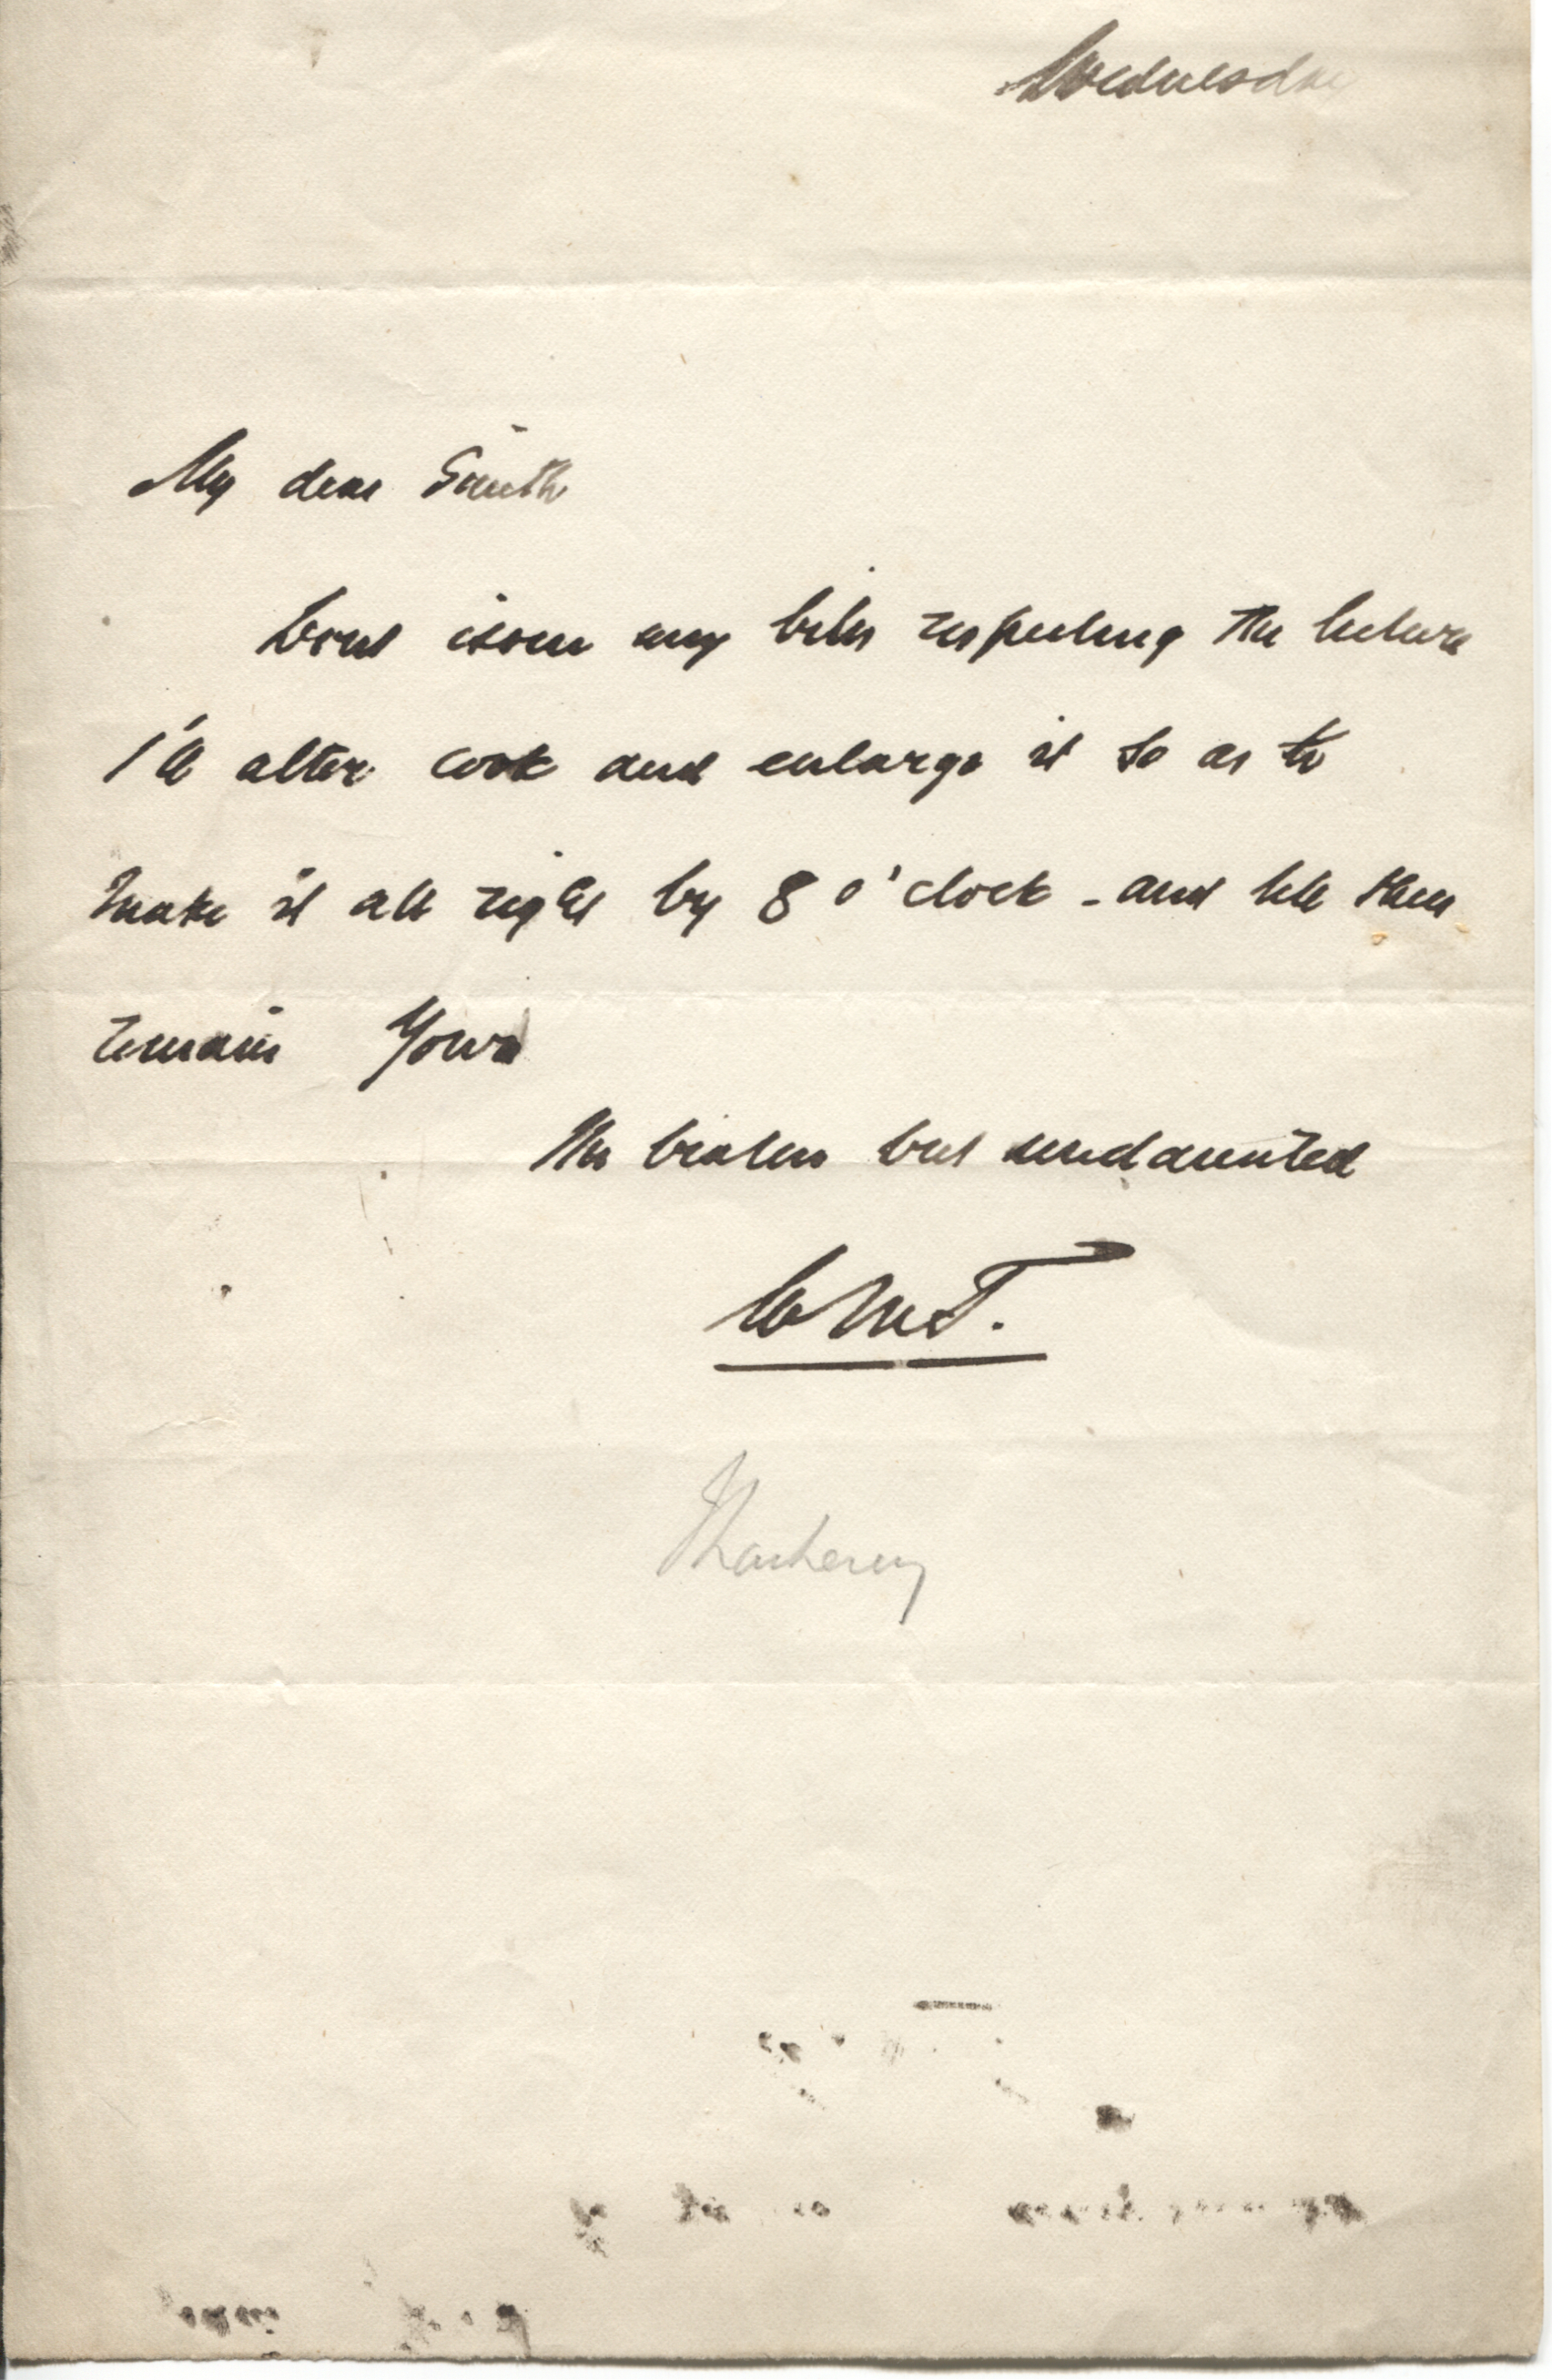 Wednesday
My dear Smith
Dont issue any bills respecting the lecture
I'll alter cook and enlarge it so as to
make it all right by 8 o'clock - and till then
remain Yours
the beaten but undaunted
WMT.
Thackeray